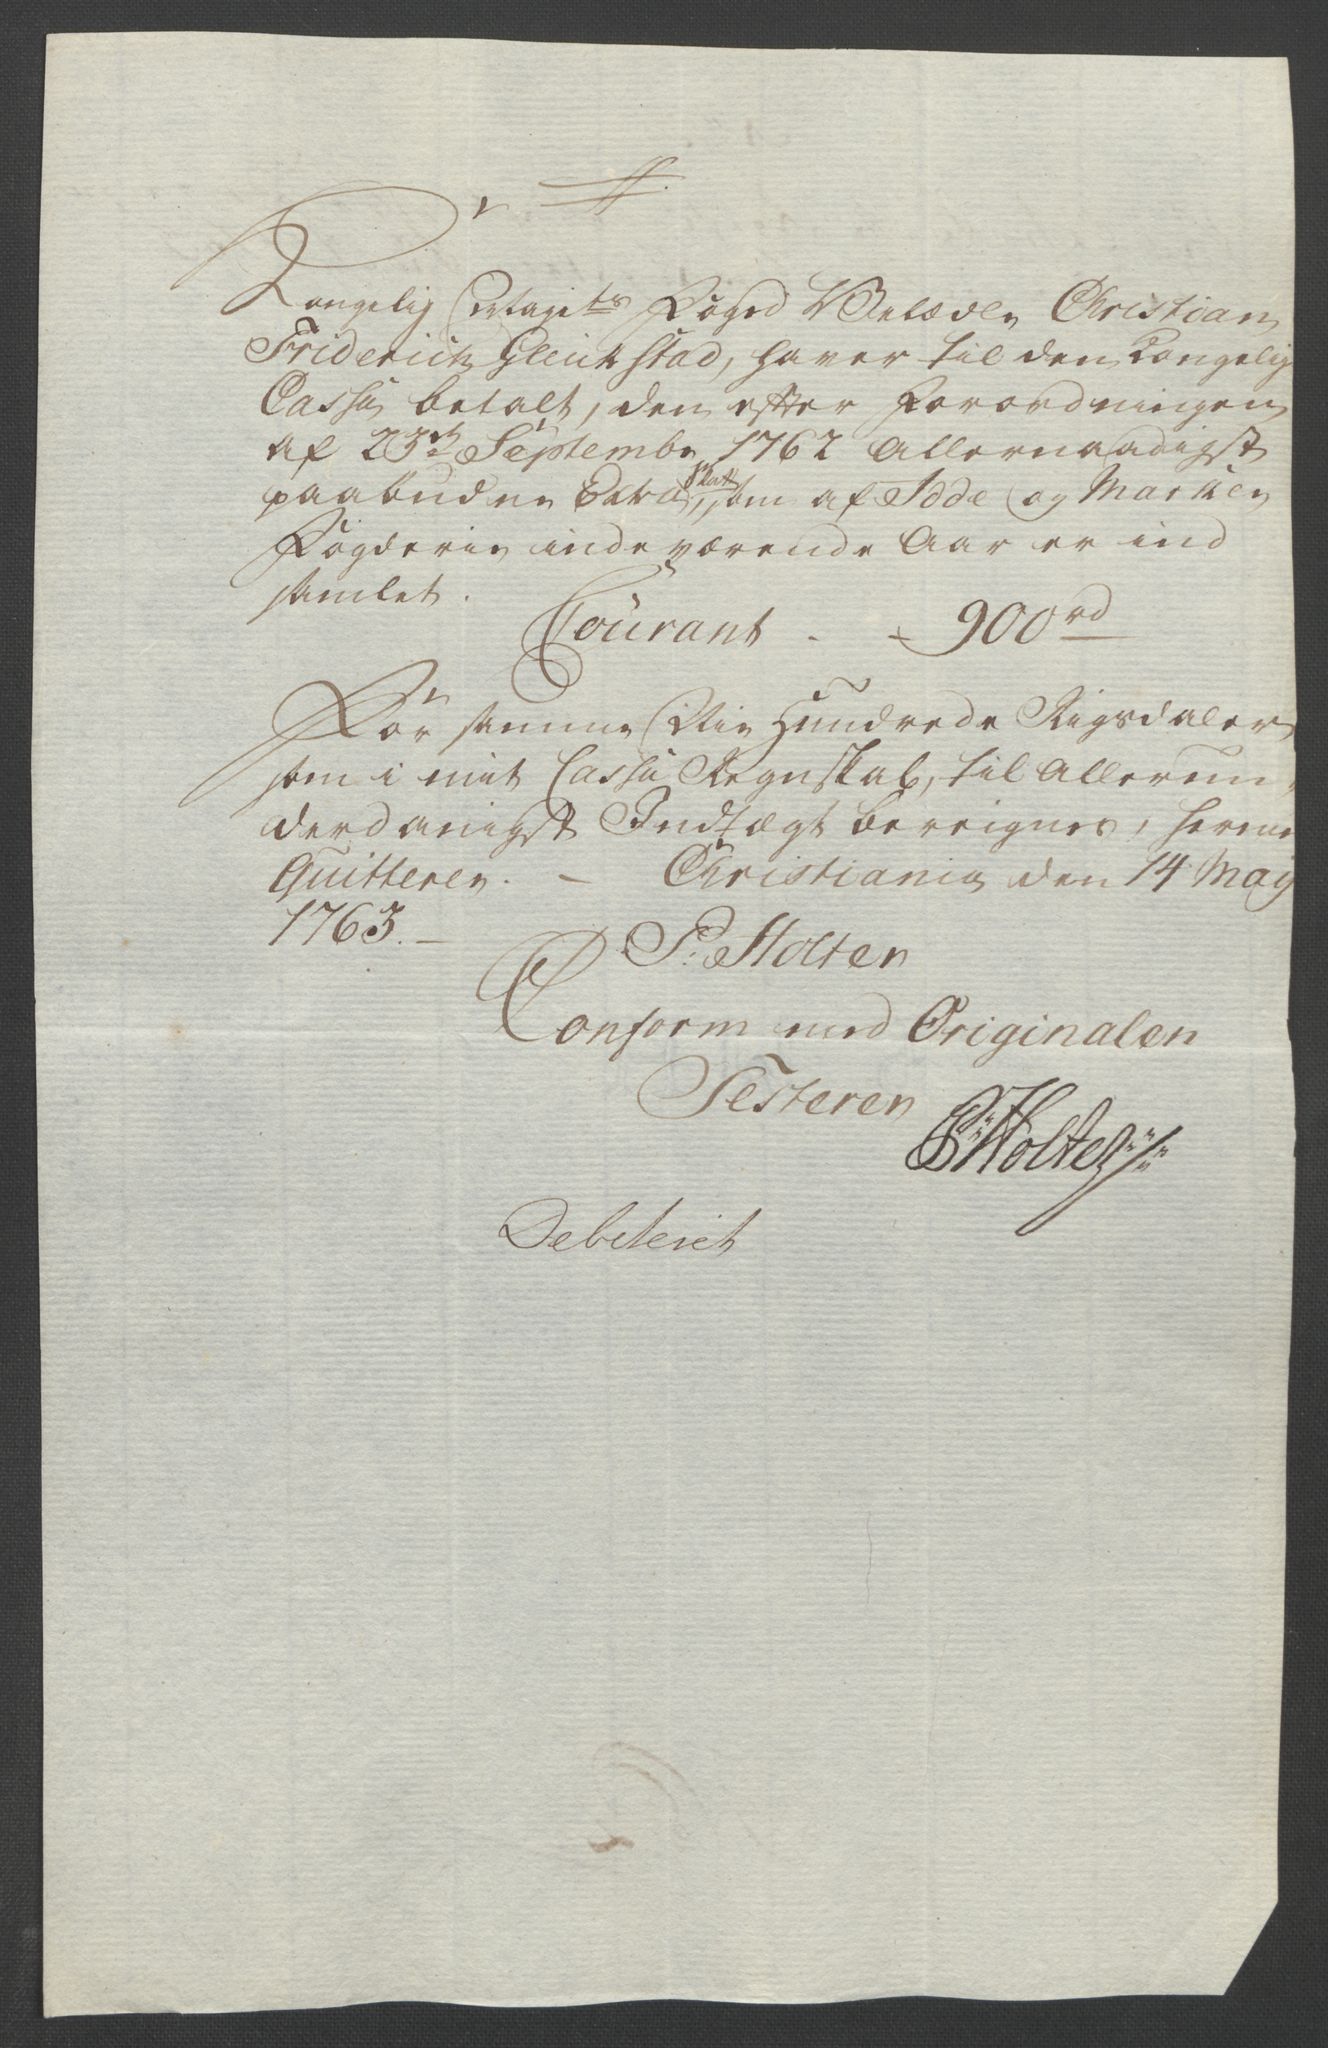 Kongelig Mayets Foged Velædle Christian
Friderich Gleichstad, haver til den Kongelig
Cassa betalt, den efter Forordningen
af 23de Septembr 1762 Allernaadigst
paabudne Extra Skatt, som af Idde og Marker
Fogderie indeværende Aar er ind
samlet.
Courant - - 900 rd
For samme Nie Hundrede Rigsdaler
som i mit Cassa Regnskab, til Allerun
derdanigst Indtægt bereignes, herved
Quitteres. - Christiania den 14 May
1763. -
P: Holter
Conform med Originalen
Testeren
P: Holter
Debiteret